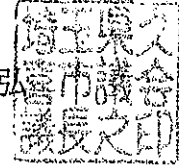 弘
埼玉県久
喜市議會
議長之印